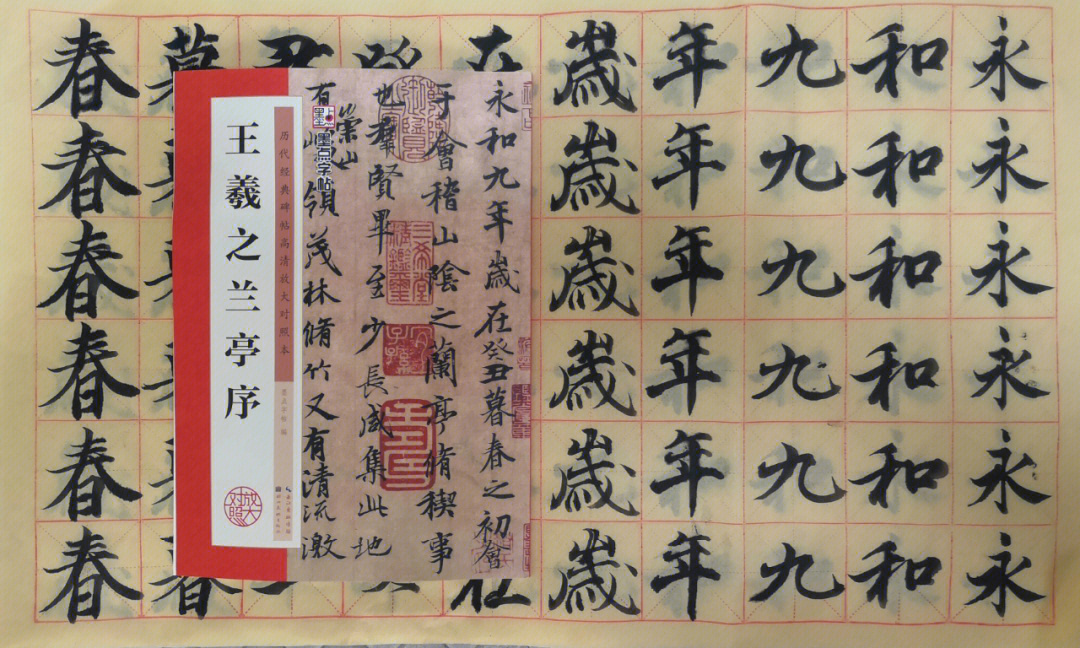 永
永
永
永
永
永
和
和
和
和
和
和
九
九
九
九
九
九
年
年
年
年
年
年
歲
歲
歲
歲
歲
歲
在
在
癸
丑
暮
暮
春
春
春
春
春
春
永和九年歲在癸丑暮春之初會
于會稽山陰之蘭亭脩稧事
也羣賢畢至少長咸集此地
有崇山領茂林脩竹又有清流激
墨点字帖
历代经典碑帖高清放大对照本
王羲之兰亭序
墨点字帖 编
放大对照